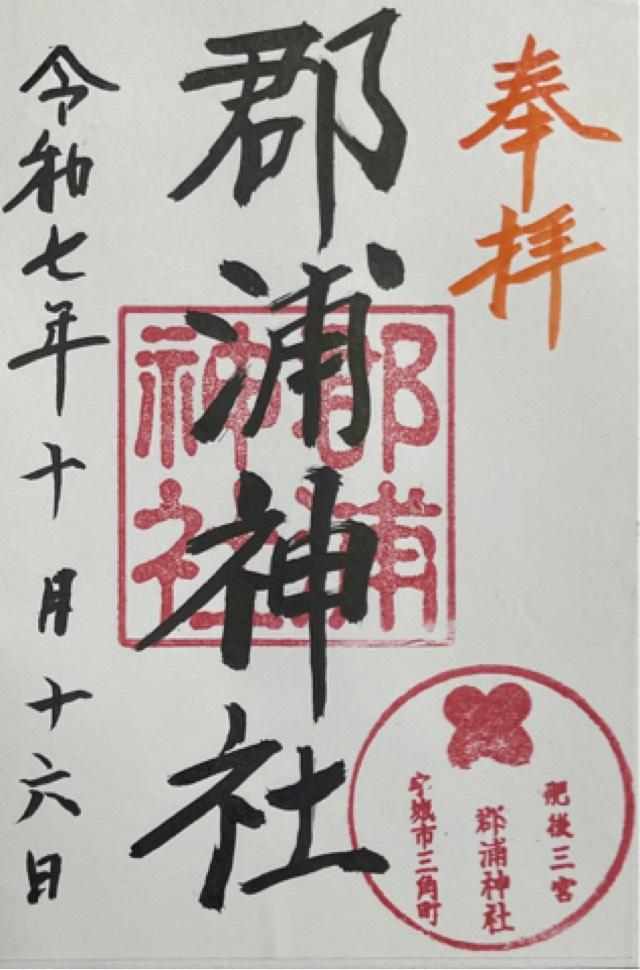 奉拝
郡浦神社
郡浦
神社
肥後三宮
郡浦神社
宇城市三角町
令和七年十月十六日